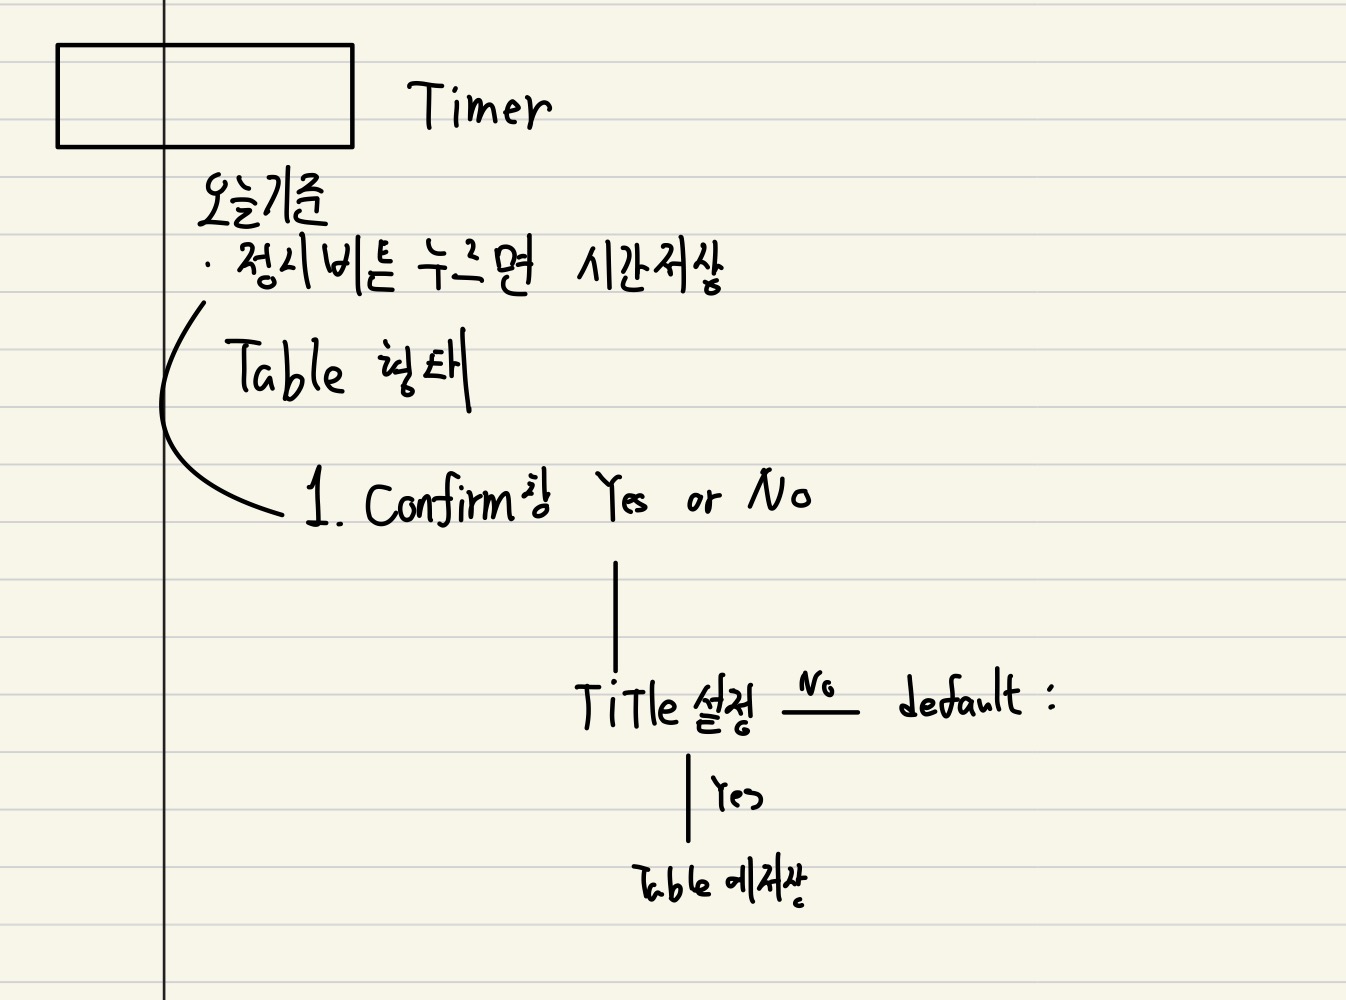 Timer
오늘기준
· 정시버튼 누르면 시간저장
Table 형태
1. Confirm창 Yes or No
TiTle 설정 No default :
Yes
Table 에저장